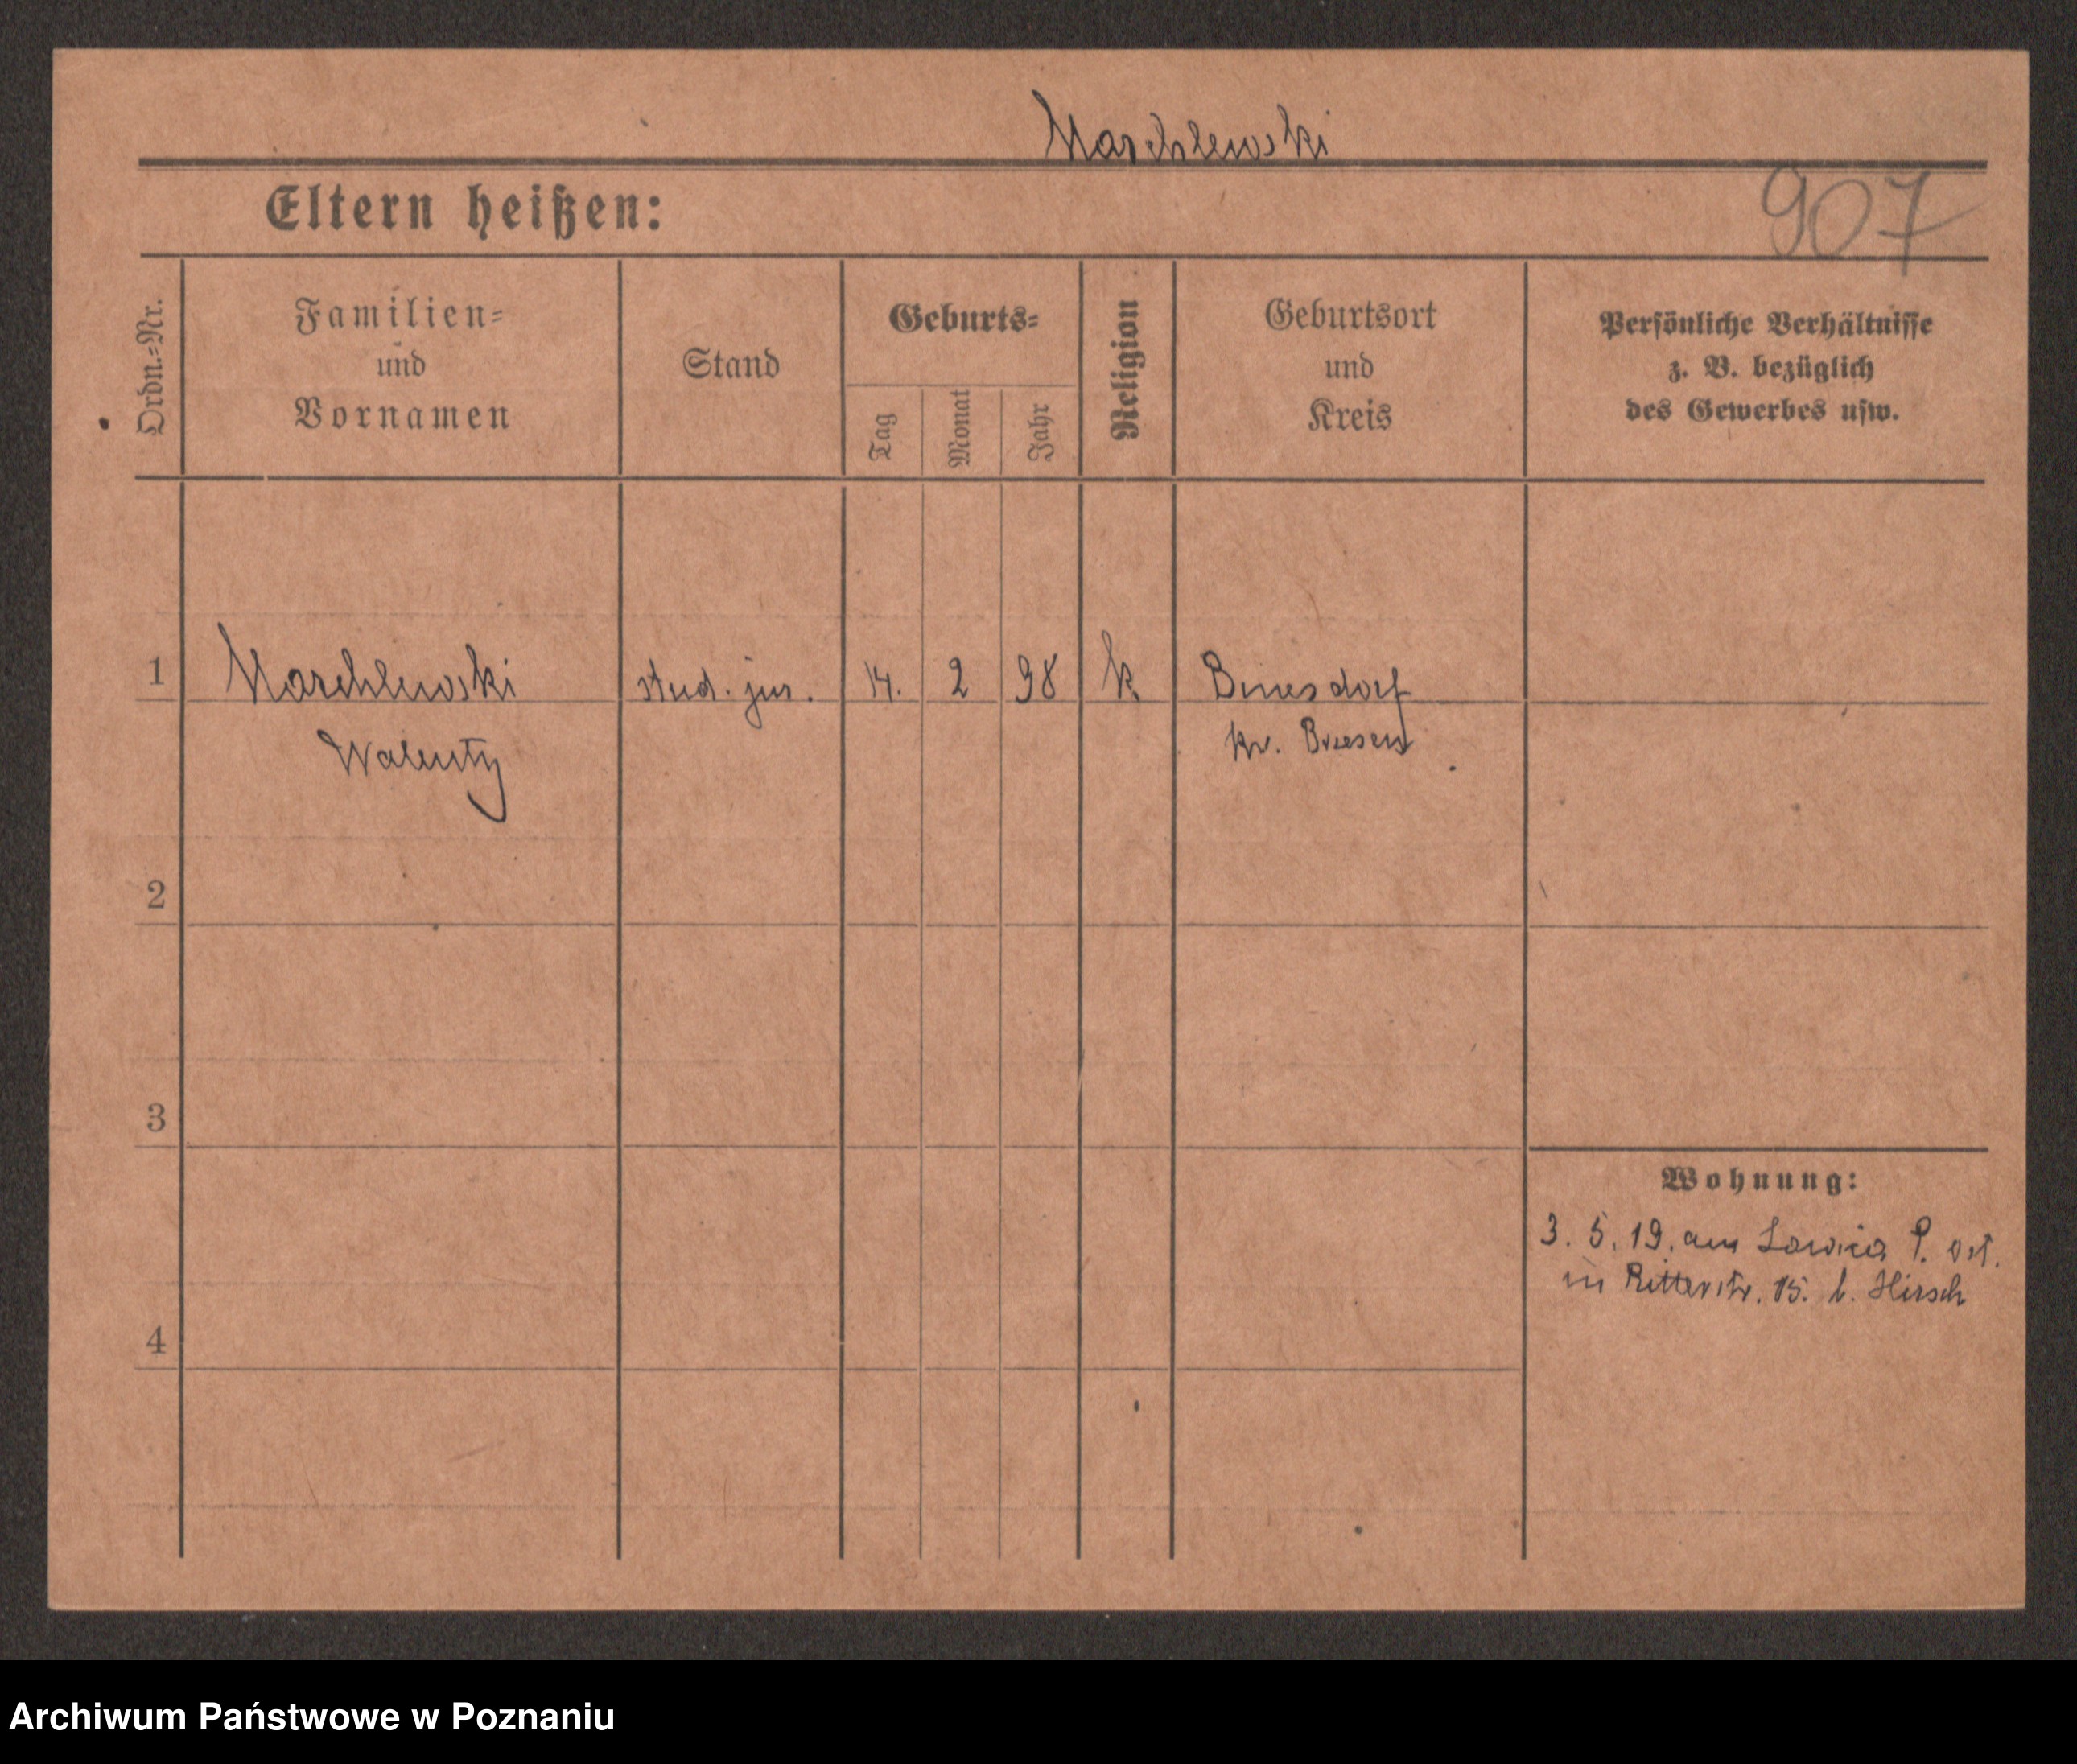 Marchlewski
Eltern heißen:
907
Ordn.-Nr.
Familien-
und
Vornamen
Stand
Geburts-
Tag
Monat
Jahr
Religion
Geburtsort
und
Kreis
Persönliche Verhältnisse
z. B. bezüglich
des Gewerbes usw.
1
Marchlewski
Walenty
stud. jur.
14.
2
98
k.
kr. Briesen
2
3
4
Wohnung:
3. 5. 19. aus
in Ritterstr. 15. b. Hirsch
Archiwum Państwowe w Poznaniu